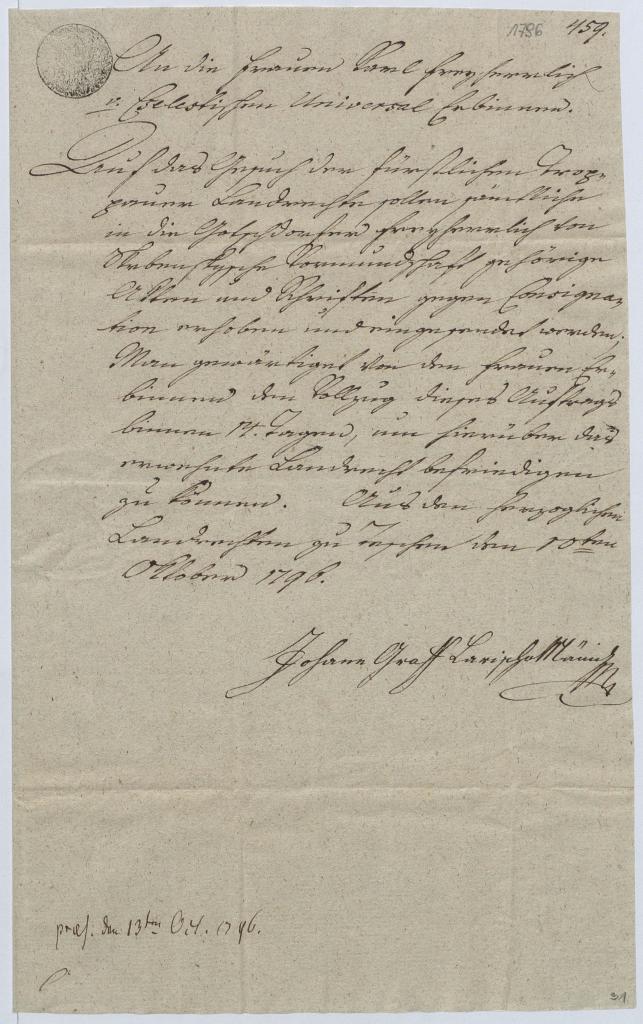 1796 459.
An die Frauen Karl Freyherrlich
v. Celestischen Universal Erbinnen.
Auf das Gesuch der fürstlichen Trop-
pauer Landrechte sollen sämtliche
in die Freyherrlich von
Skrbenskysche Vormundschaft gehörige
Akten und Schriften gegen Consigna-
tion erhoben und eingesendet werden.
Man gewärtiget von den Frauen Er-
binnen den Vollzug dieses Auftrags
binnen 14. Tagen, um hierüber das
erwehnte Landrecht befriedigen
zu können. Aus den herzoglichen
Landrechten zu Teschen den 10ten
Oktober 1796.
Johann Graf Larisch
præs. den 13ten Oct. 1796.
31